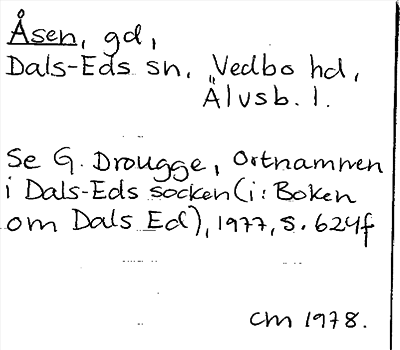 Åsen, gd,
Dals-Eds sn, Vedbo hd,
Älvsb. l.
Se G. Drougge, Ortnamnen
i Dals-Eds socken (i: Boken
om Dals Ed), 1977, s. 624f
cm 1978.